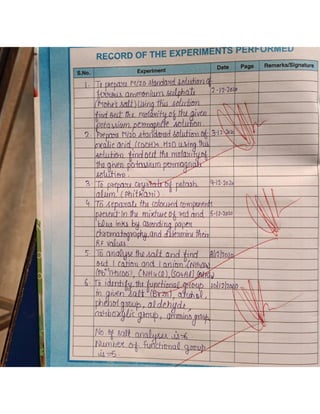 RECORD OF THE EXPERIMENTS PERFORMED
S.No. Experiment Date Page Remarks/Signature
1. To prepare M/20 standard solution of
ferrous ammonium sulphate 2-12-2020
(Mohr's salt) Using this solution
find out the molarity of the given
potassium permagnate solution.
2. Prepare M/20 standard solution of 3-12-2020
oxalic acid, (COOH)2 H2O using this
solution find out the molarity of
the given potassium permagnate
solution.
3. To prepare crystals of potash 4-12-2020
alum (Phitkari)
4. To separate the coloured components
present in the mixture of red and 5-12-2020
blue inks by ascending paper
chromatography and determine their
Rf values
5. To analyse the salt and find
out 1 cation and 1 anion
6. To identify the functional group
in given salt alcohol,
phenol group, aldehyde,
carboxylic group, amino group
No. of salt analyses is-6
Number of functional group
is-5